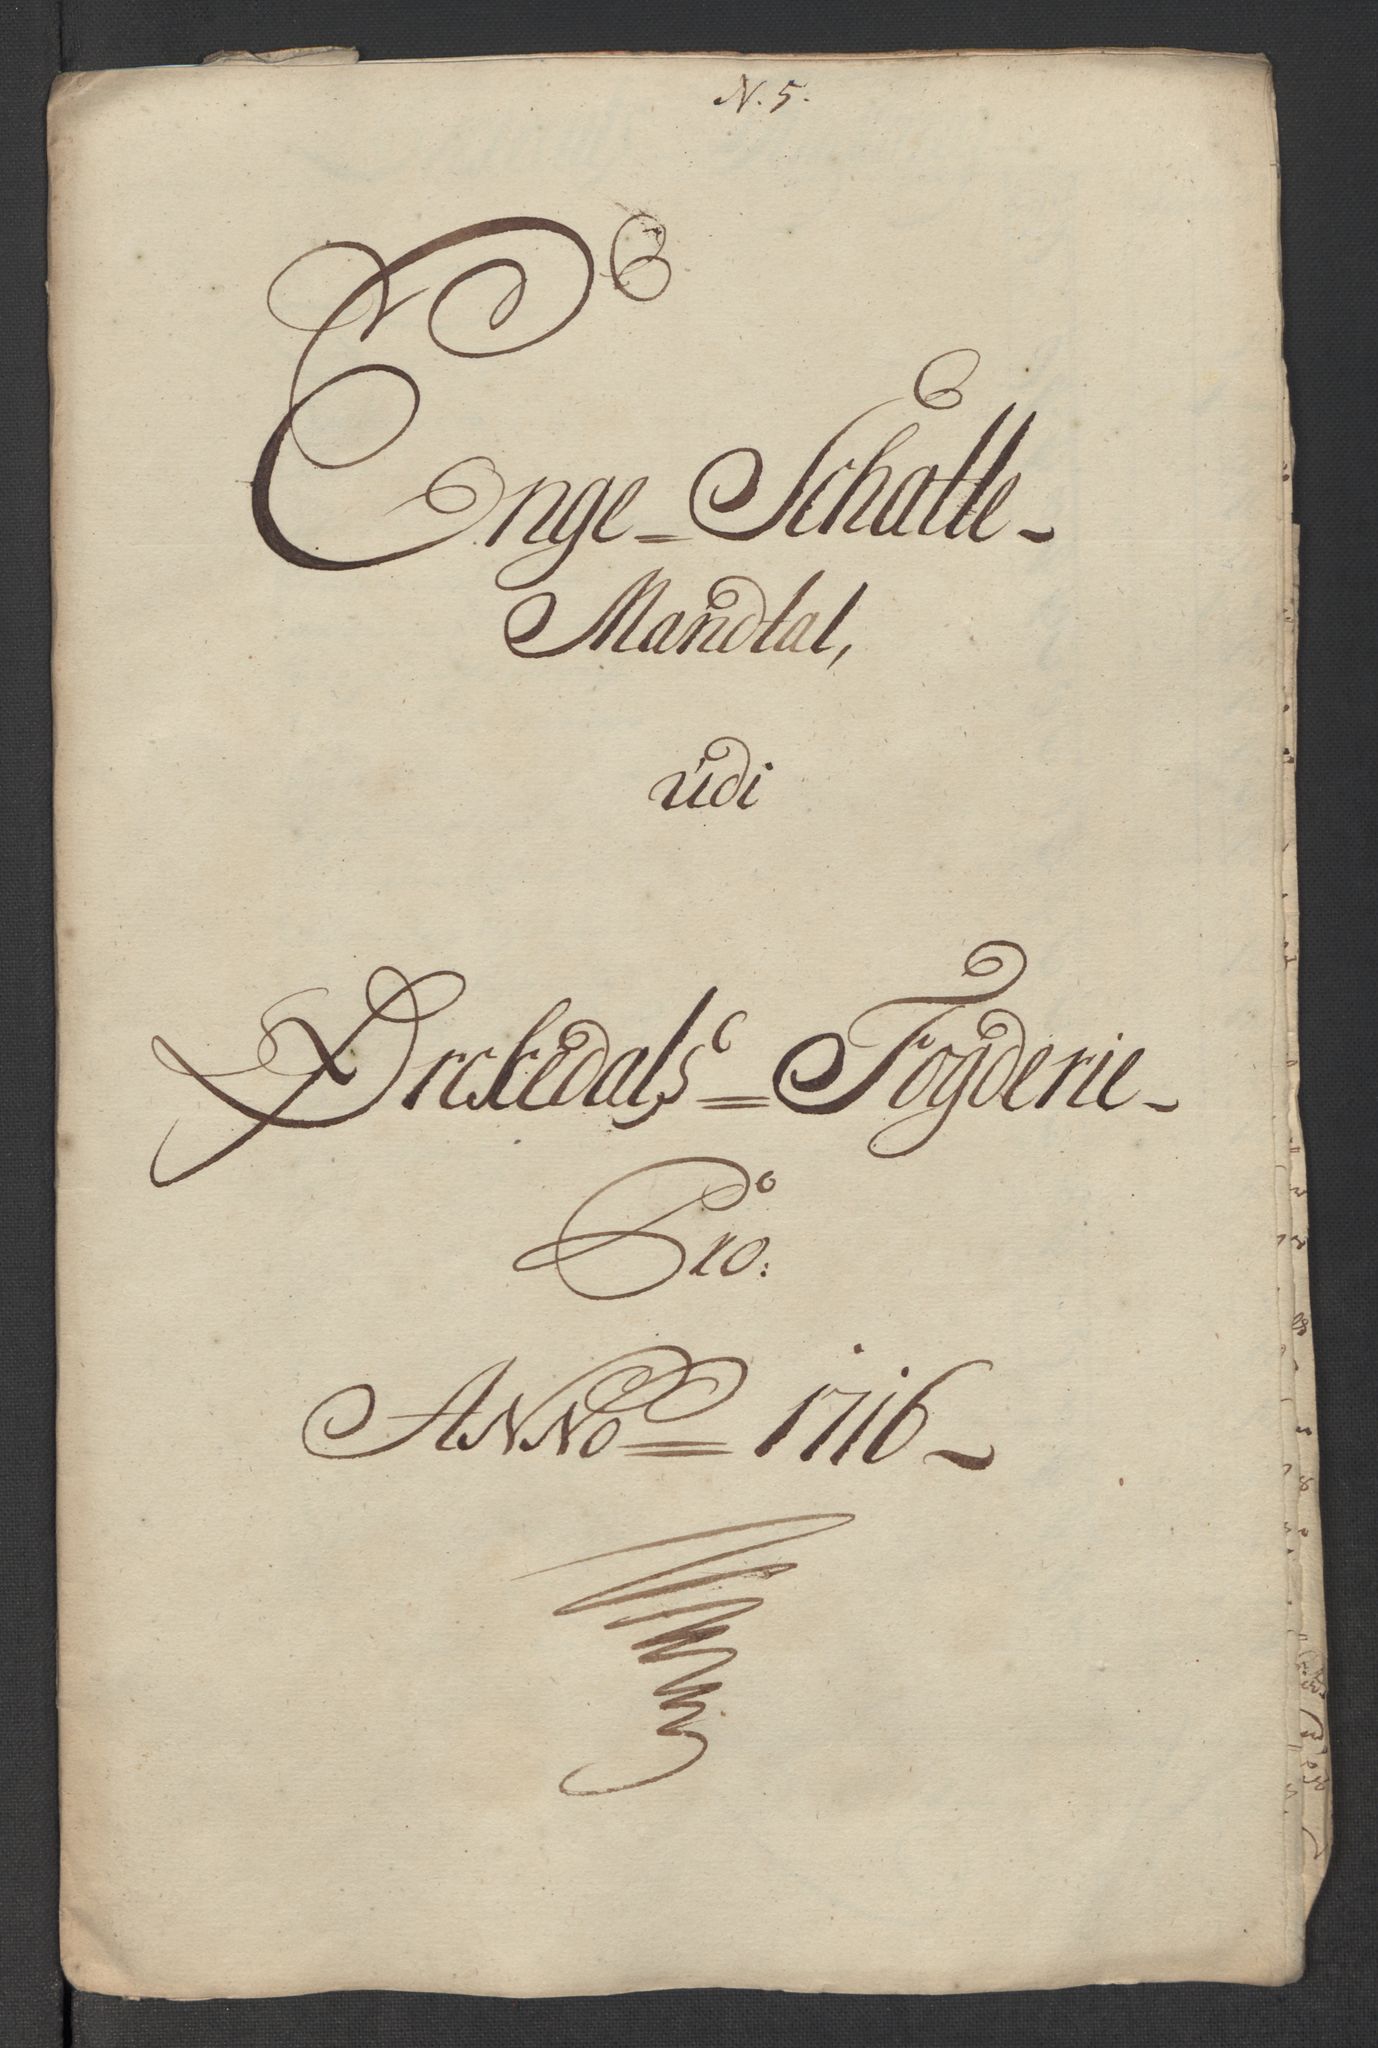 N. 5.
Enge=Schatte-
Mandtal,
udi
Ørckedals=Fogderie-
Pro:
ANNO= 1716-